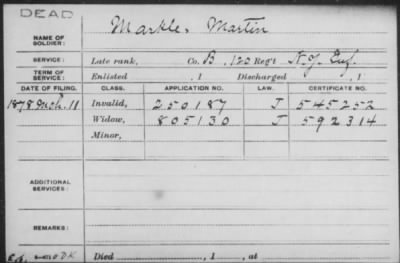 DEAD
NAME OF SOLDIER: Markle, Martin
SERVICE: Late rank, Co. B, 120 Reg't N.Y. Inf.
TERM OF SERVICE: Enlisted , 1 Discharged , 1
DATE OF FILING. CLASS. APPLICATION NO. LAW. CERTIFICATE NO.
1878 Mch. 11 Invalid, 250187 J 545252
Widow, 805130 J 592314
Minor,
ADDITIONAL SERVICES:
REMARKS:
Died , 1 , at